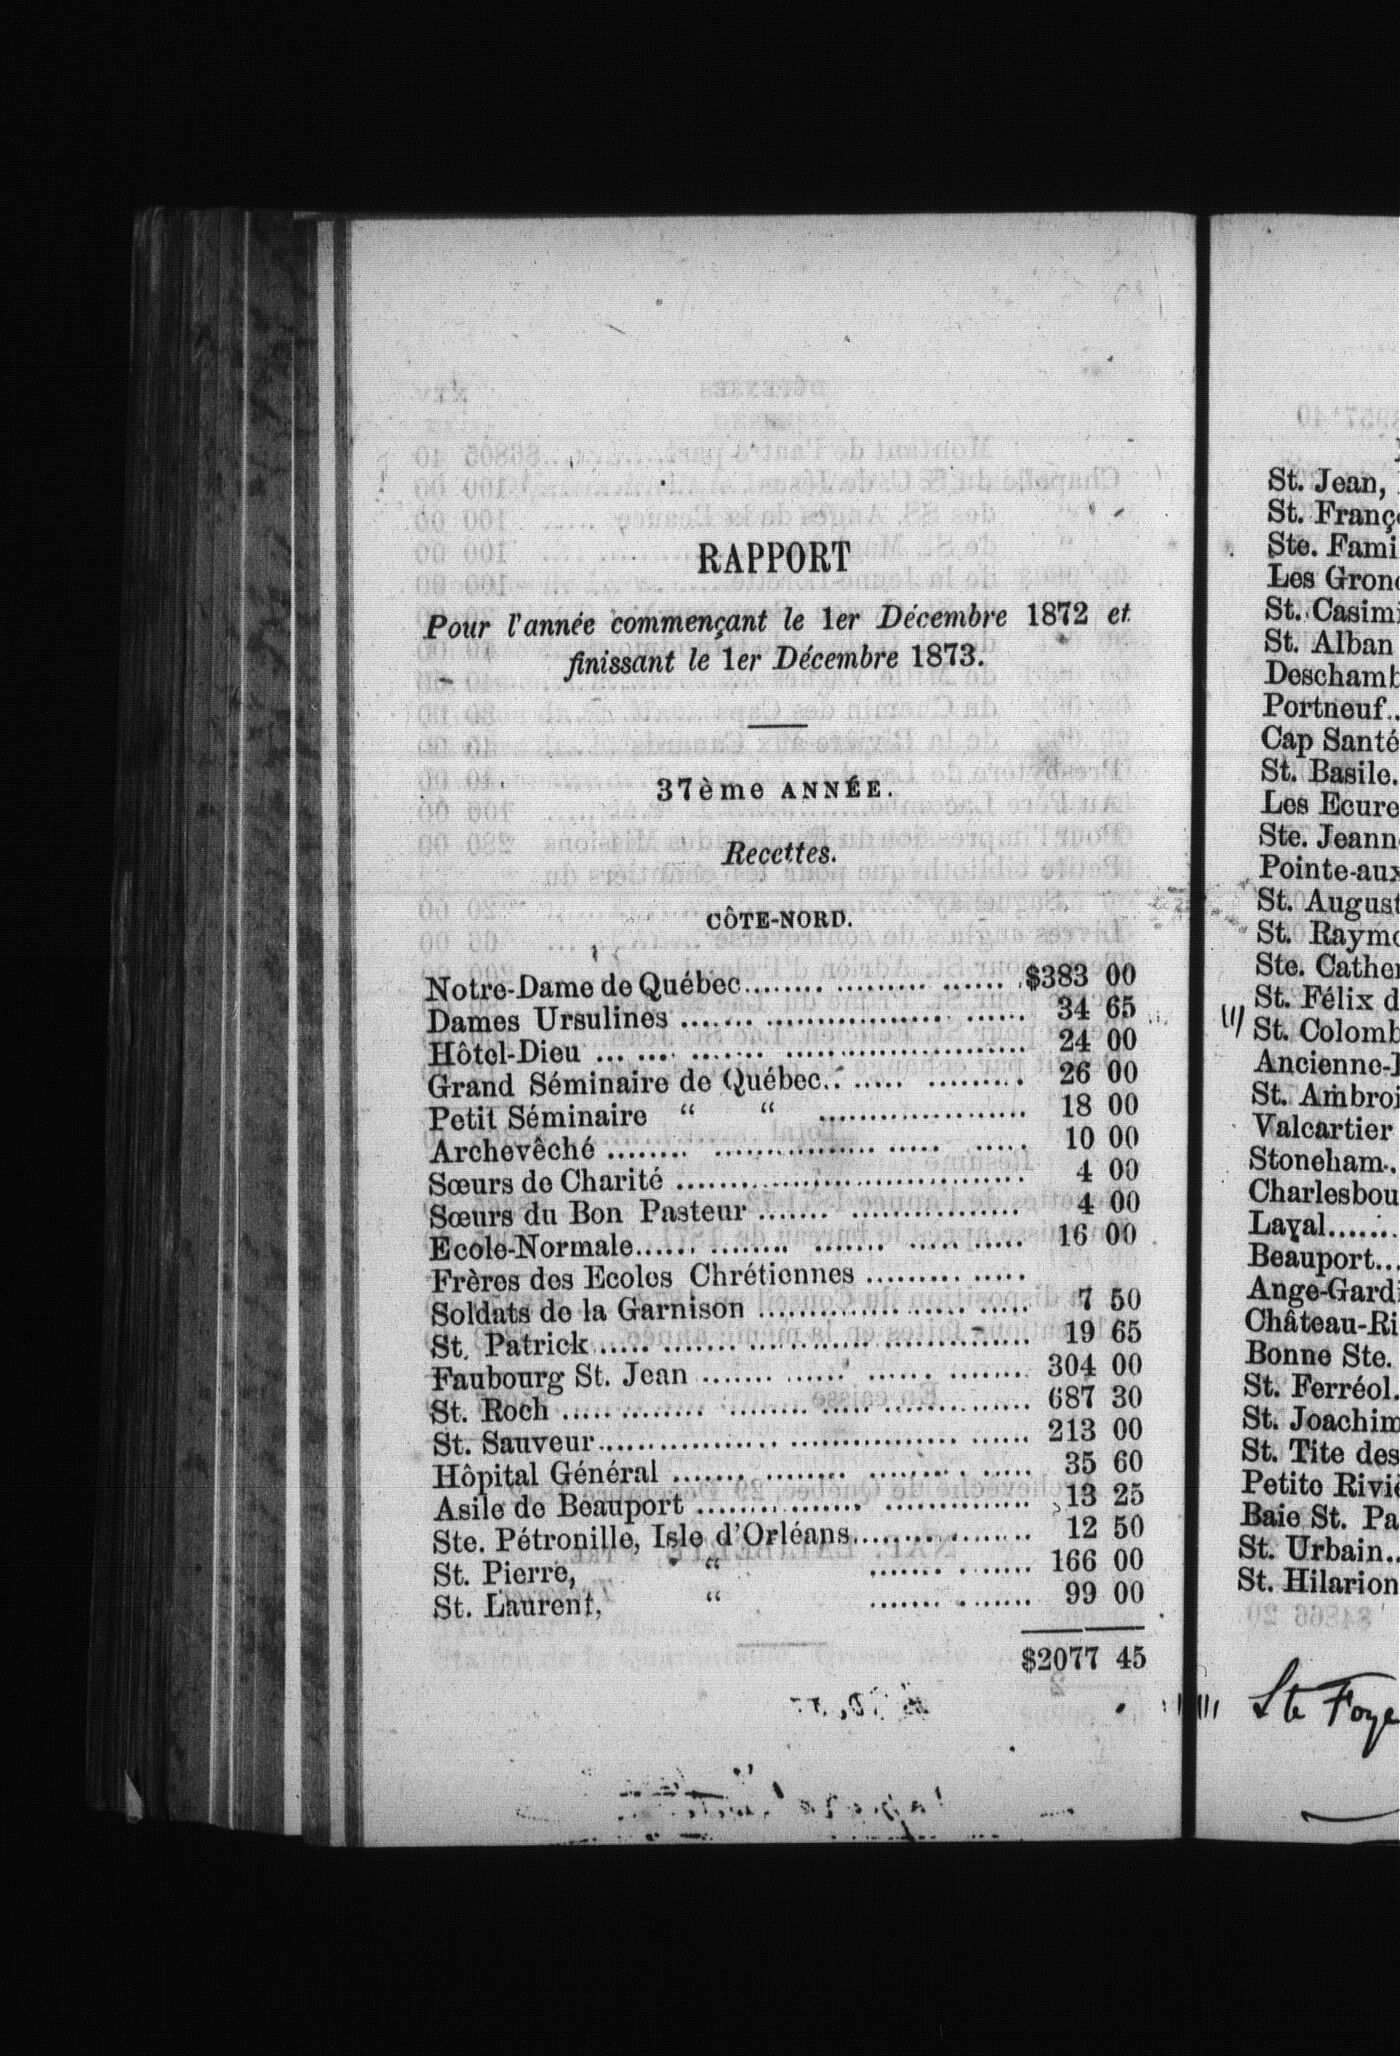 RAPPORT
Pour l'année commençant le 1er Décembre 1872 et
finissant le 1er Décembre 1873.
37ème ANNÉE.
Recettes.
CÔTE-NORD.
Notre-Dame de Québec....... ........ ...... $383 00
Dames Ursulines ....... ................ ...... 34 65
Hôtel-Dieu ... .... ....... ....................... 24 00
Grand Séminaire de Québec.. ..... ......... 26 00
Petit Séminaire “ “ .................... 18 00
Archevêché ........ ................ ..... ..... 10 00
Sœurs de Charité .................................. 4 00
Sœurs du Bon Pasteur ....... ................. 4 00
Ecole-Normale...... ........ ....... ..... ..... 16 00
Frères des Ecoles Chrétiennes ......... .....
Soldats de la Garnison ..................... ... 7 50
St. Patrick ..... ..... ............................. 19 65
Faubourg St. Jean ....... ...... ..... ........ 304 00
St. Roch ..... ........ ....... .................... 687 30
St. Sauveur.................. ................ ...... 213 00
Hôpital Général ....... ........ ....... . ..... 35 60
Asile de Beauport ................. .............. 13 25
Ste. Pétronille, Isle d'Orléans.................. 12 50
St. Pierre, “ ....... . ...... 166 00
St. Laurent, “ ....... . ...... 99 00
$2077 45
St. Jean,
St. Franç
Ste. Fami
Les Grond
St. Casimi
St. Alban
Deschamb
Portneuf..
Cap Santé
St. Basile.
Les Ecure
Ste. Jeann
Pointe-aux
St. August
St. Raymo
Ste. Cather
St. Félix d
St. Colomb
Ancienne-L
St. Ambroi
Valcartier
Stoneham..
Charlesbou
Laval......
Beauport...
Ange-Gardi
Château-Ri
Bonne Ste.
St. Ferréol.
St. Joachim
St. Tite des
Petite Riviè
Baie St. Pa
St. Urbain..
St. Hilarion
Ste Foye